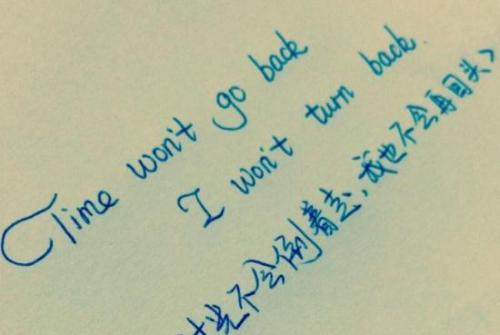 Time won't go back
I won't turn back.
光不会倒着走,我也不会再回头>